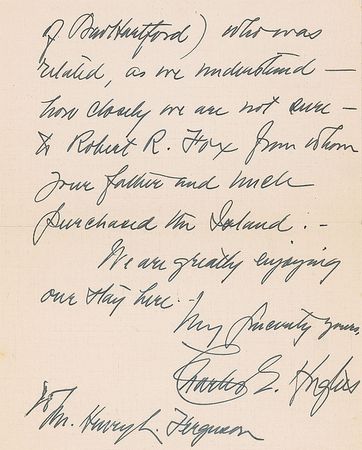 of BadHartford) who was
related, as we understand —
how closely we are not sure —
to Robert R. Fox from whom
your father and uncle
purchased the Island. —
We are greatly enjoying
our stay here. -
Very Sincerely yours,
Charles E. Hughes
To
Mr. Henry L. Ferguson